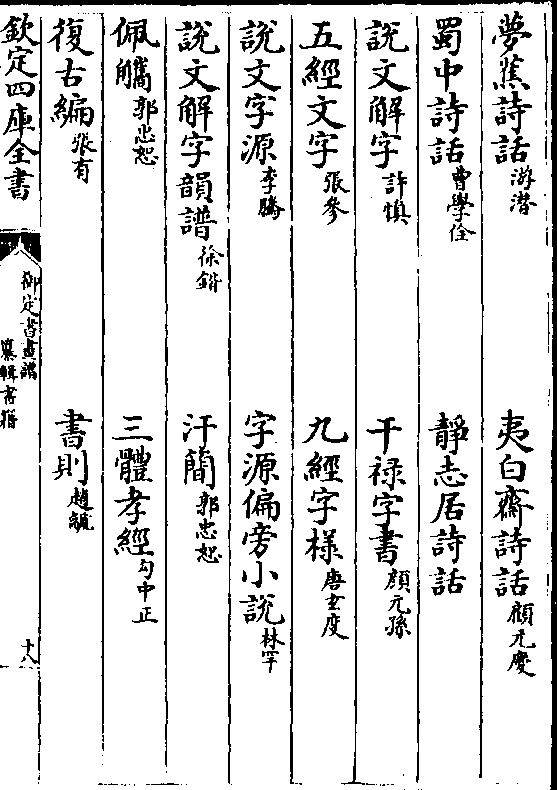 夢蕉詩話 游潛 夷白齋詩話 顧元慶
蜀中詩話 曹學佺 靜志居詩話
說文解字 許愼 干祿字書 顏元孫
五經文字 張參 九經字樣 唐玄度
說文字源 李騰 字源偏旁小說 林罕
說文解字韻譜 徐鍇 汗簡 郭忠恕
佩觿 郭忠恕 三體孝經 勾中正
復古編 張有 書則 趙
欽定四庫全書 御定書畫譜 纂輯書籍 十八